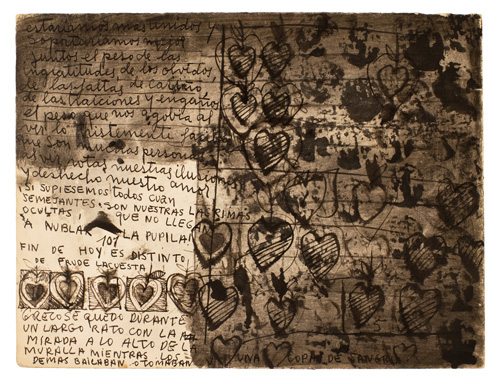 estaríamos mas unidos y
soportaríamos mejor
juntos el peso de las
ingratitudes de los olvidos
de las faltas de cariño
de las traiciones y engaños
el peso que nos agobia al
ver lo tristemente
que son muchas personas
al ver rotas nuestras ilusiones
y deshecho nuestro amor
SI SUPIESEMOS TODOS CUAN
SEMEJANTES SON NUESTRAS LAGRIMAS
OCULTAS QUE NO LLEGAN
A NUBLAR LA PUPILA
107
FIN DE HOY ES DISTINTO
DE FRUDE LACUESTA
GRECO SE QUEDO DURANTE
UN LARGO RATO CON LA
MIRADA A LO ALTO DE LA
MURALLA MIENTRAS LOS
DEMAS BAILABAN O TOMABAN UNA COPA DE SANGRIA